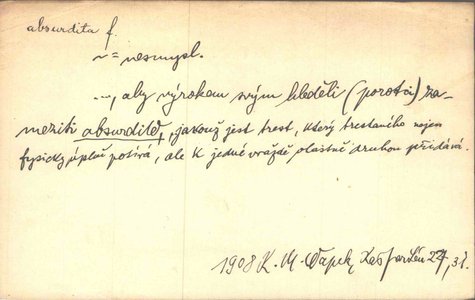 absurdita f.
~ = nesmysl.
..., aby výrokem svým hleděli (porotci) za-
meziti absurditě, jakouž jest trest, který trestaného nejen
fysicky úplně potírá, ale k jedné vraždě vlastně druhou přidává.
1908 K. M. Čapek, Kašpar Lén 27, 3.